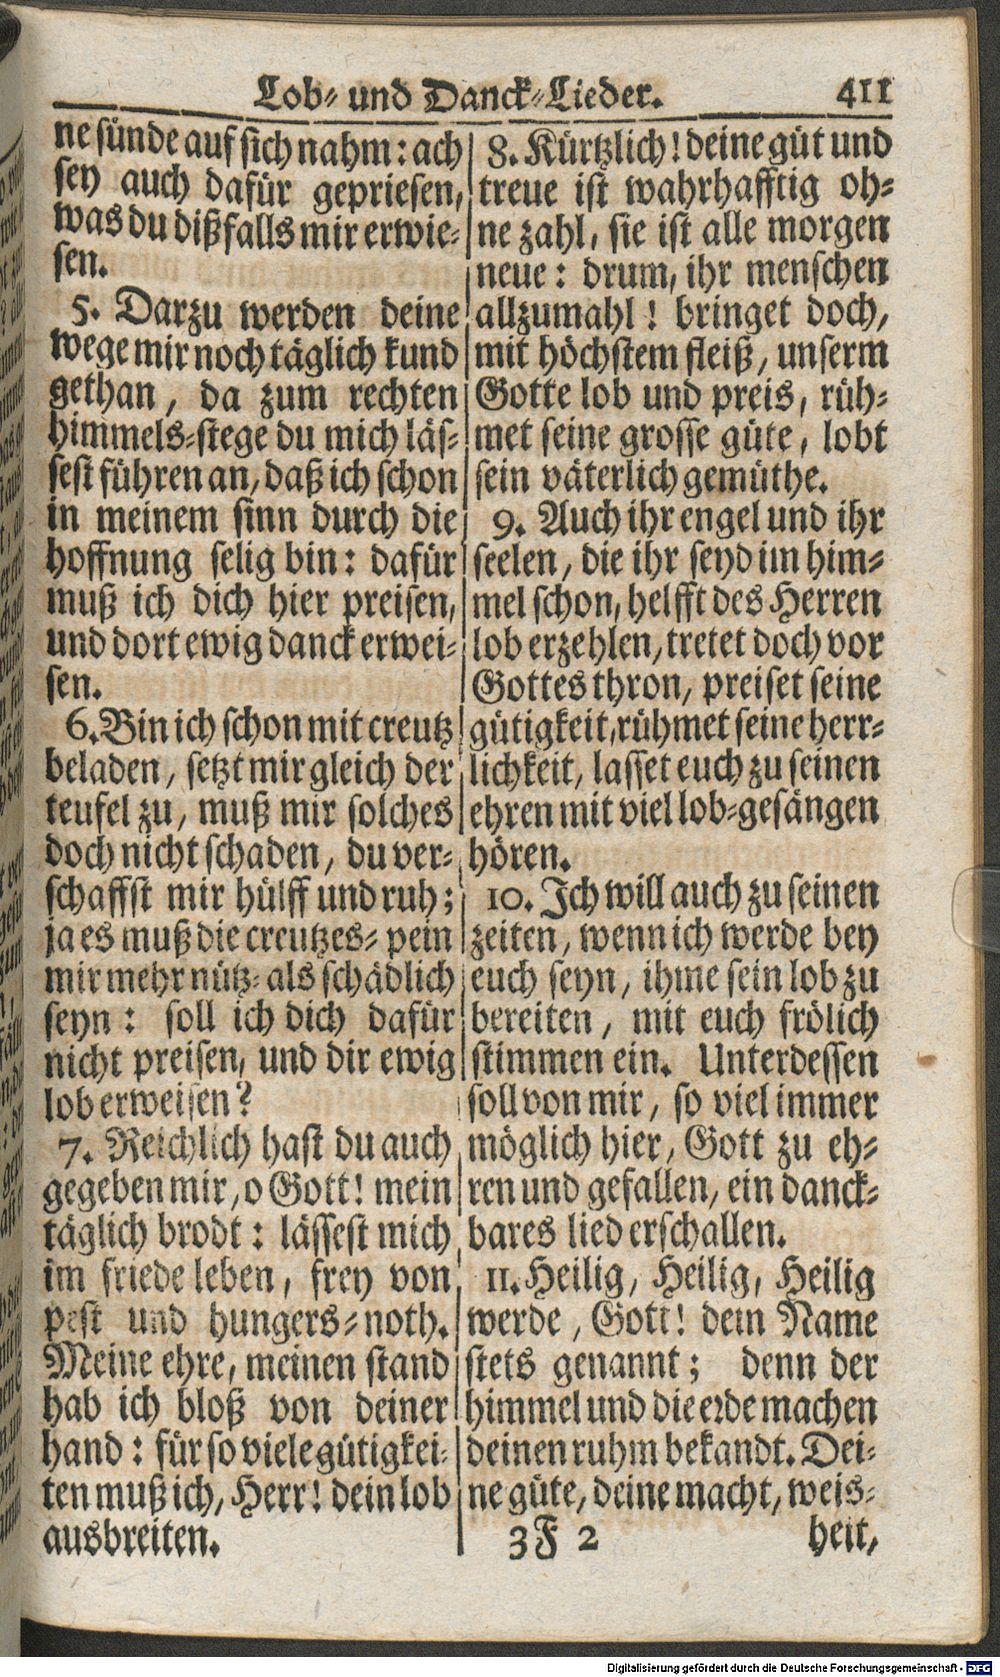 Lob- und Danck-Lieder. 411
ne sünde auf sich nahm: ach
sey auch dafür gepriesen,
was du dißfalls mir erwie-
sen.
5. Darzu werden deine
wege mir noch täglich kund
gethan, da zum rechten
himmels-stege du mich läs-
sest führen an, daß ich schon
in meinem sinn durch die
hoffnung selig bin: dafür
muß ich dich hier preisen,
und dort ewig danck erwei-
sen.
6. Bin ich schon mit creutz
beladen, setzt mir gleich der
teufel zu, muß mir solches
doch nicht schaden, du ver-
schaffst mir hülff und ruh;
ja es muß die creutzes-pein
mir mehr nütz- als schädlich
seyn: soll ich dich dafür
nicht preisen, und dir ewig
lob erweisen?
7. Reichlich hast du auch
gegeben mir, o Gott! mein
täglich brodt: lässest mich
im friede leben, frey von
pest und hungers-noth.
Meine ehre, meinen stand
hab ich bloß von deiner
hand: für so viele gütigkei-
ten muß ich, Herr! dein lob
ausbreiten.
8. Kürtzlich! deine güt und
treue ist wahrhafftig oh-
ne zahl, sie ist alle morgen
neue: drum, ihr menschen
allzumahl! bringet doch,
mit höchstem fleiß, unserm
Gotte lob und preis, rüh-
met seine grosse güte, lobt
sein väterlich gemüthe.
9. Auch ihr engel und ihr
seelen, die ihr seyd im him-
mel schon, helfft des Herren
lob erzehlen, tretet doch vor
Gottes thron, preiset seine
gütigkeit, rühmet seine herr-
lichkeit, lasset euch zu seinen
ehren mit viel lob-gesängen
hören.
10. Ich will auch zu seinen
zeiten, wenn ich werde bey
euch seyn, ihme sein lob zu
bereiten, mit euch frölich
stimmen ein. Unterdessen
soll von mir, so viel immer
möglich hier, Gott zu eh-
ren und gefallen, ein danck-
bares lied erschallen.
11. Heilig, Heilig, Heilig
werde, Gott! dein Name
stets genannt; denn der
himmel und die erde machen
deinen ruhm bekandt. Dei-
ne güte, deine macht, weis-
3F 2 heit,
Digitalisierung gefördert durch die Deutsche Forschungsgemeinschaft - DFG